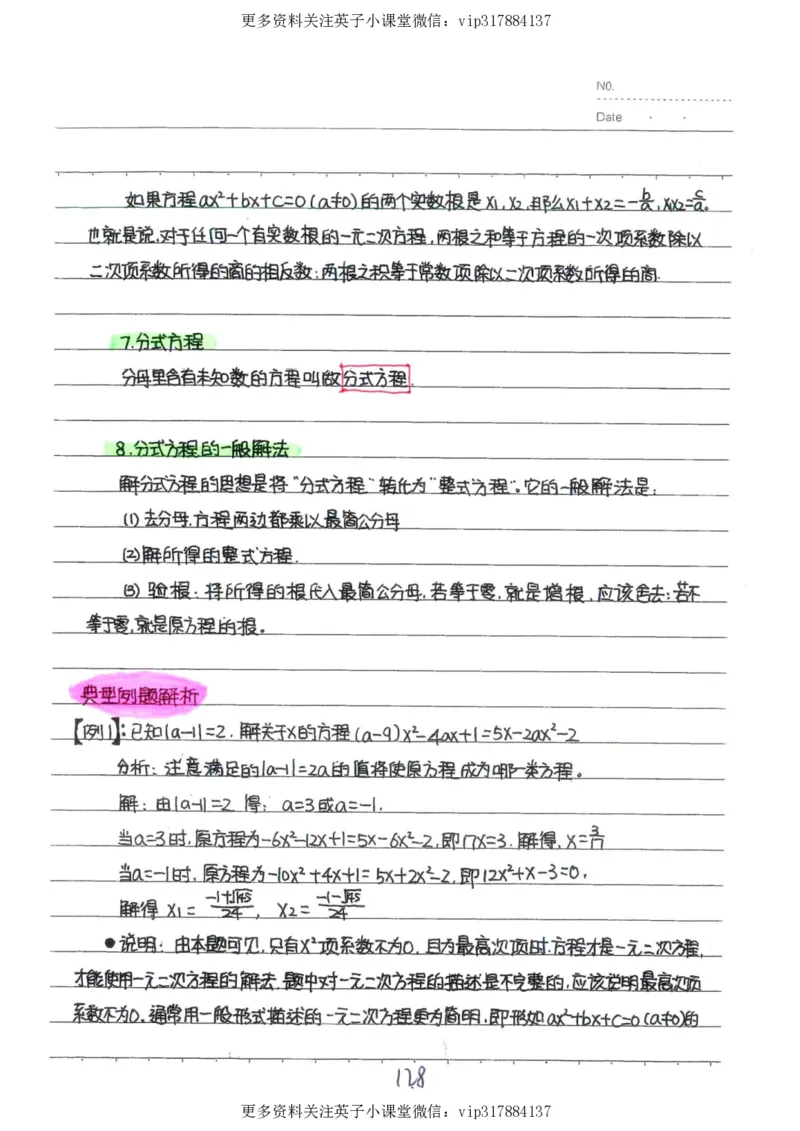 更多资料关注英子小课堂微信：vip317884137
NO.
Date
如果方程ax²+bx+c=0(a≠0)的两个实数根是x₁,x₂,那么x₁+x₂=-b/a,x₁x₂=c/a。
也就是说,对于任何一个有实数根的一元二次方程,两根之和等于方程的一次项系数除以
二次项系数所得的商的相反数;两根之积等于常数项除以二次项系数所得的商.
7.分式方程
分母里含有未知数的方程叫做分式方程.
8.分式方程的一般解法
解分式方程的思想是将“分式方程”转化为“整式方程”。它的一般解法是:
(1)去分母,方程两边都乘以最简公分母
(2)解所得的整式方程.
(3)验根:将所得的根代入最简公分母,若等于零,就是增根,应该舍去;若不
等于零,就是原方程的根。
典型例题解析
【例1】:已知|a-1|=2,解关于x的方程(a-9)x²-4ax+1=5x-2ax²-2
分析:注意满足的|a-1|=2a的值将使原方程成为哪一类方程。
解:由|a-1|=2 得: a=3或a=-1.
当a=3时,原方程为-6x²-12x+1=5x-6x²-2,即17x=3.解得,x=3/17
当a=-1时,原方程为-10x²+4x+1=5x+2x²-2,即12x²+x-3=0,
解得 x₁=(-1+√145)/24, x₂=(-1-√145)/24
●说明:由本题可见,只有x²项系数不为0,且为最高次项时,方程才是一元二次方程,
才能使用一元二次方程的解法,题中对一元二次方程的描述是不完整的,应该说明最高次项
系数不为0。通常用一般形式描述的一元二次方程更为简明,即形如ax²+bx+c=0(a≠0)的
128
更多资料关注英子小课堂微信：vip317884137